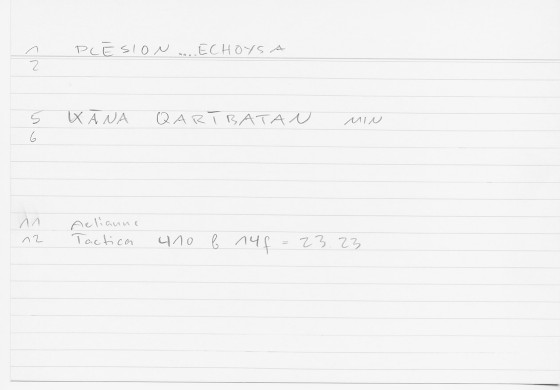 1 PLĒSION....ECHOYSA
2
5 KĀNA QARĪBATAN MIN
6
11 Aelianus
12 Tactica 410 b 14f = 23 23